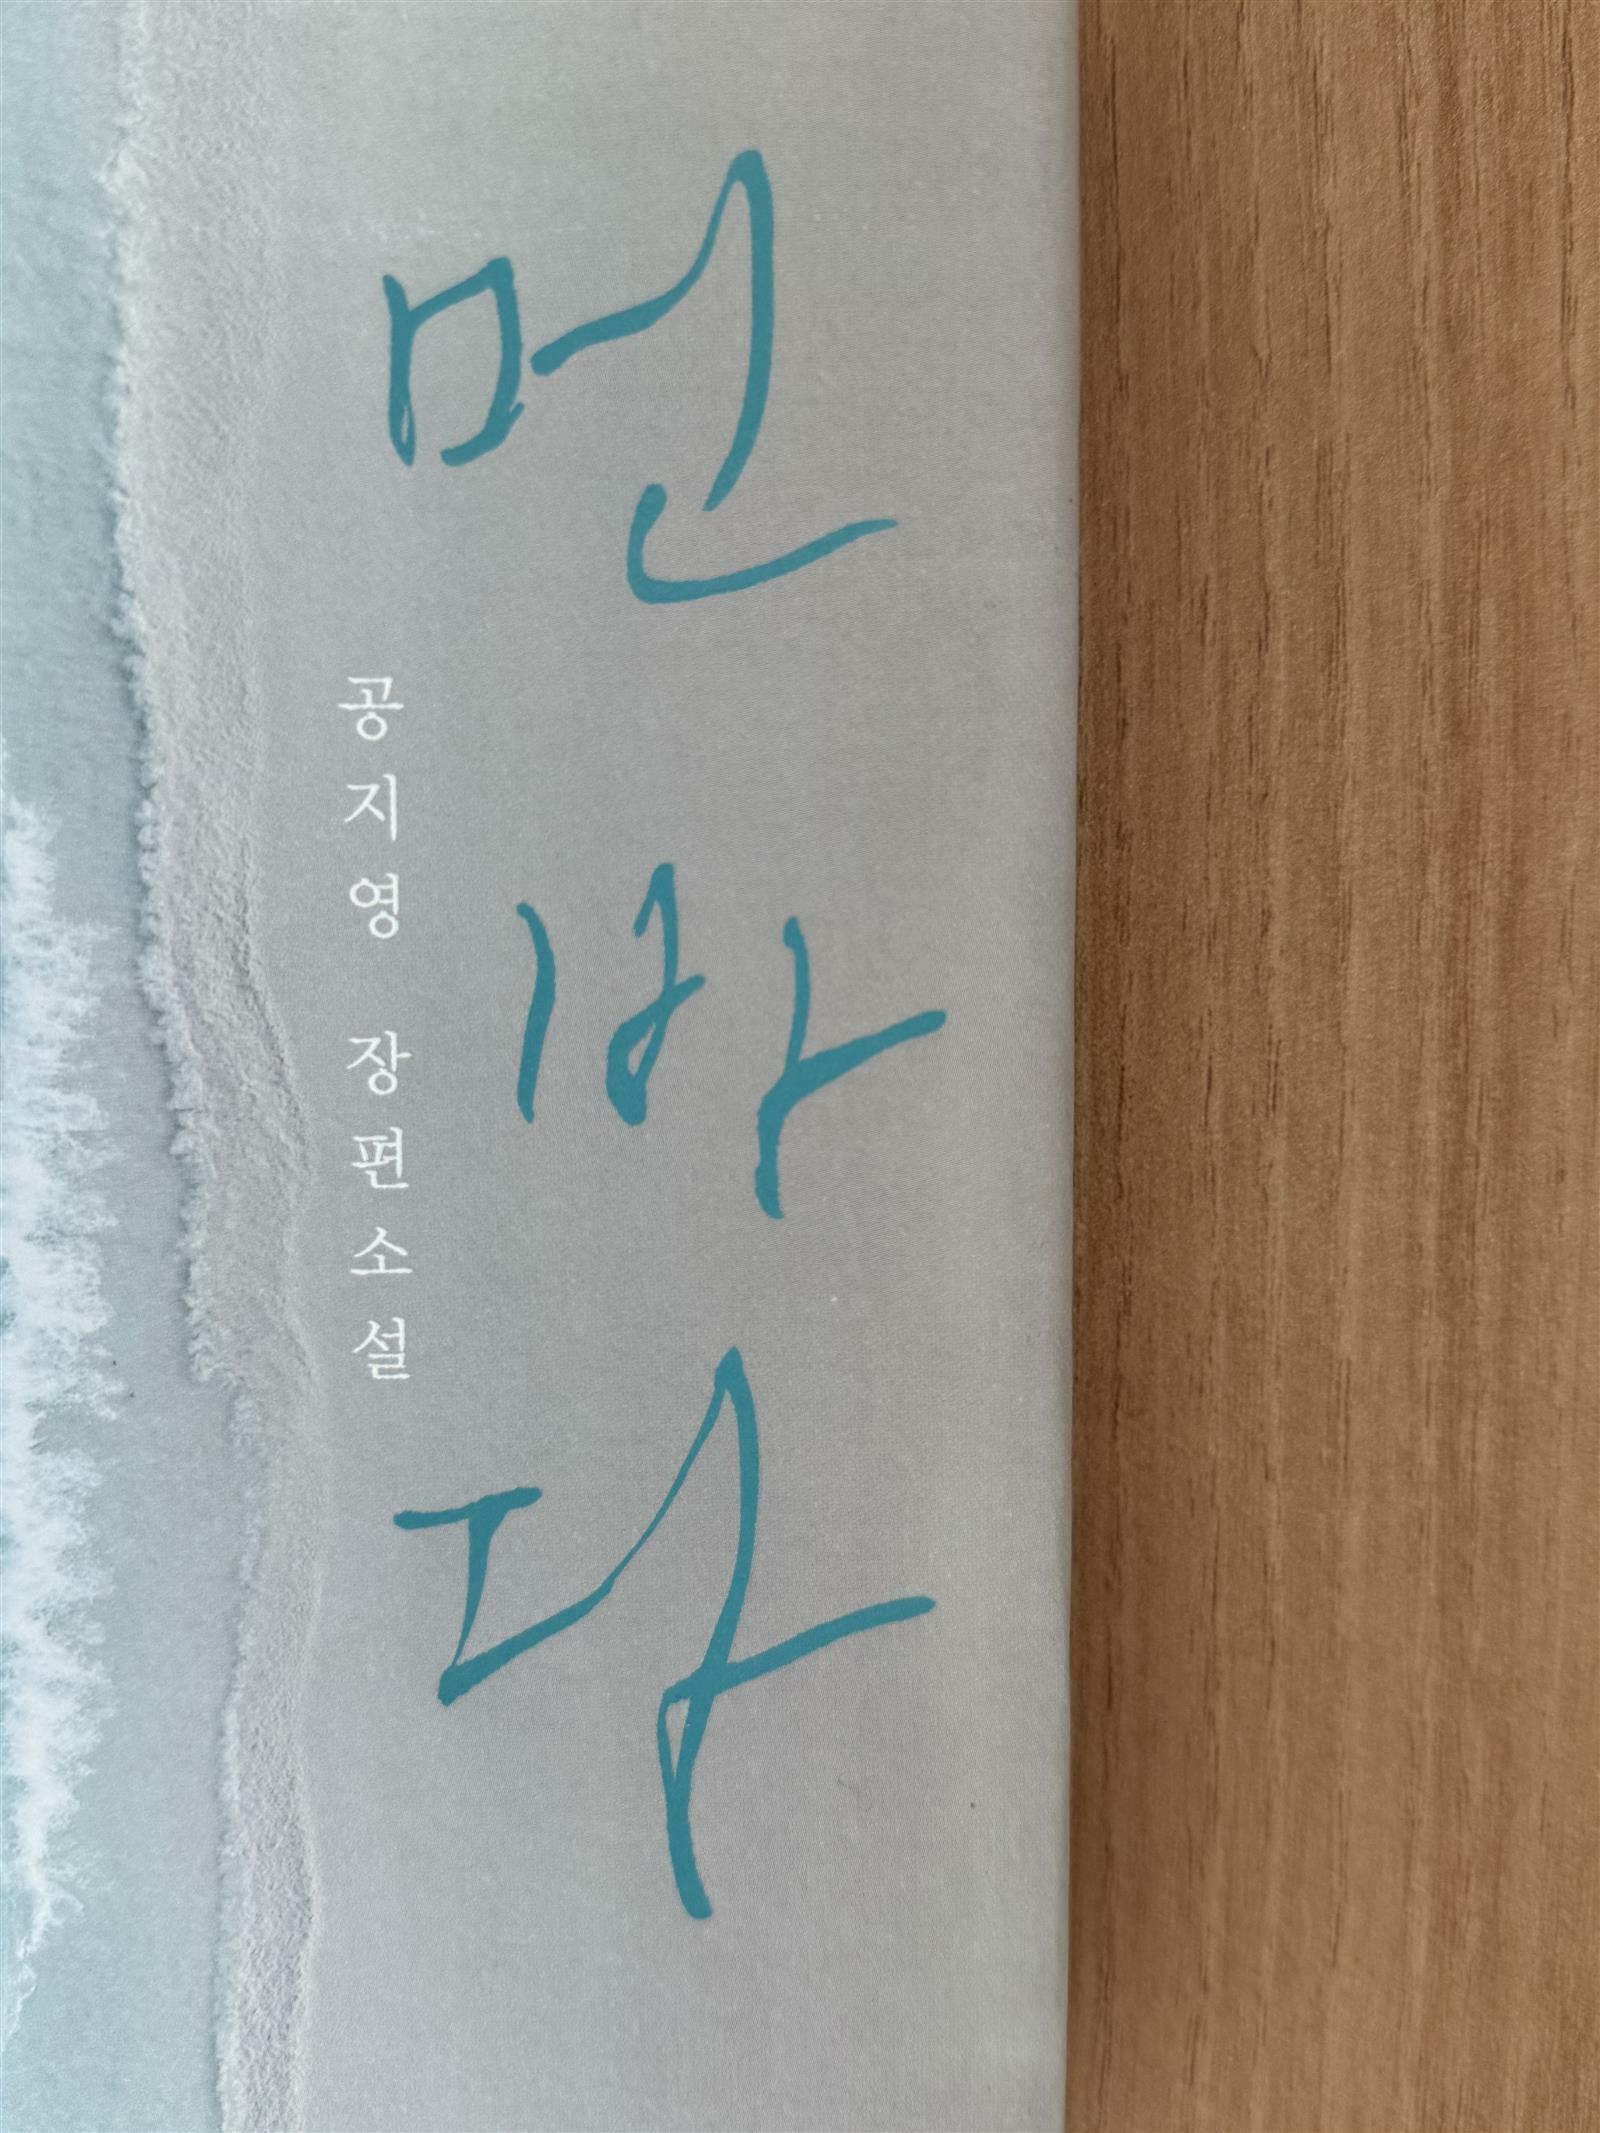 먼 바다
공지영 장편소설